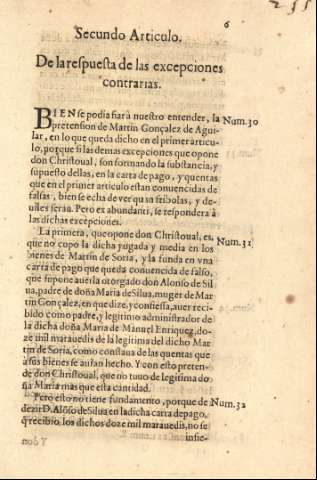 6
Secundo Articulo.
De la respuesta de las excepciones
contrarias.
BIEN se podia fiar à nuestro entender, la Num.30
pretension de Martin Gonçalez de Agui-
lar, en lo que queda dicho en el primer articu-
lo, porque si las demas excepciones que opone
don Christoual, son formando la substancia, y
supuesto dellas, en la carta de pago, y quentas
que en el primer articulo estan conuencidas de
falsas, bien se echa de ver quan fribolas, y de-
uiles seràn. Pero ex abundanti, se responderà à
las dichas excepciones.
La primera, que opone don Christoual, es, Num.31
que no cupo la dicha yugada y media en los
bienes de Martin de Soria, y la funda en vna
carta de pago que queda conuencida de falso,
que supone auerla otorgado don Alonso de Sil
ua, padre de doña Maria de Silua, muger de Mar
tin Gonçalez, en que dize, y confiessa, auer reci-
bido como padre, y legitimo administrador de
la dicha doña Maria de Manuel Enriquez, do-
ze mil marauedis de la legitima del dicho Mar
tin de Soria, como constaua de las quentas que
a sus bienes se auian hecho. Y con esto preten-
de don Christoual, que no tuuo de legitima do
ña Maria mas que esta cantidad.
Pero esto no tiene fundamento, porque de Num.32
dezir D. Alõso de Silua en la dicha carta de pago,
q̃ recibio los dichos doze mil marauedis, no se
infie-